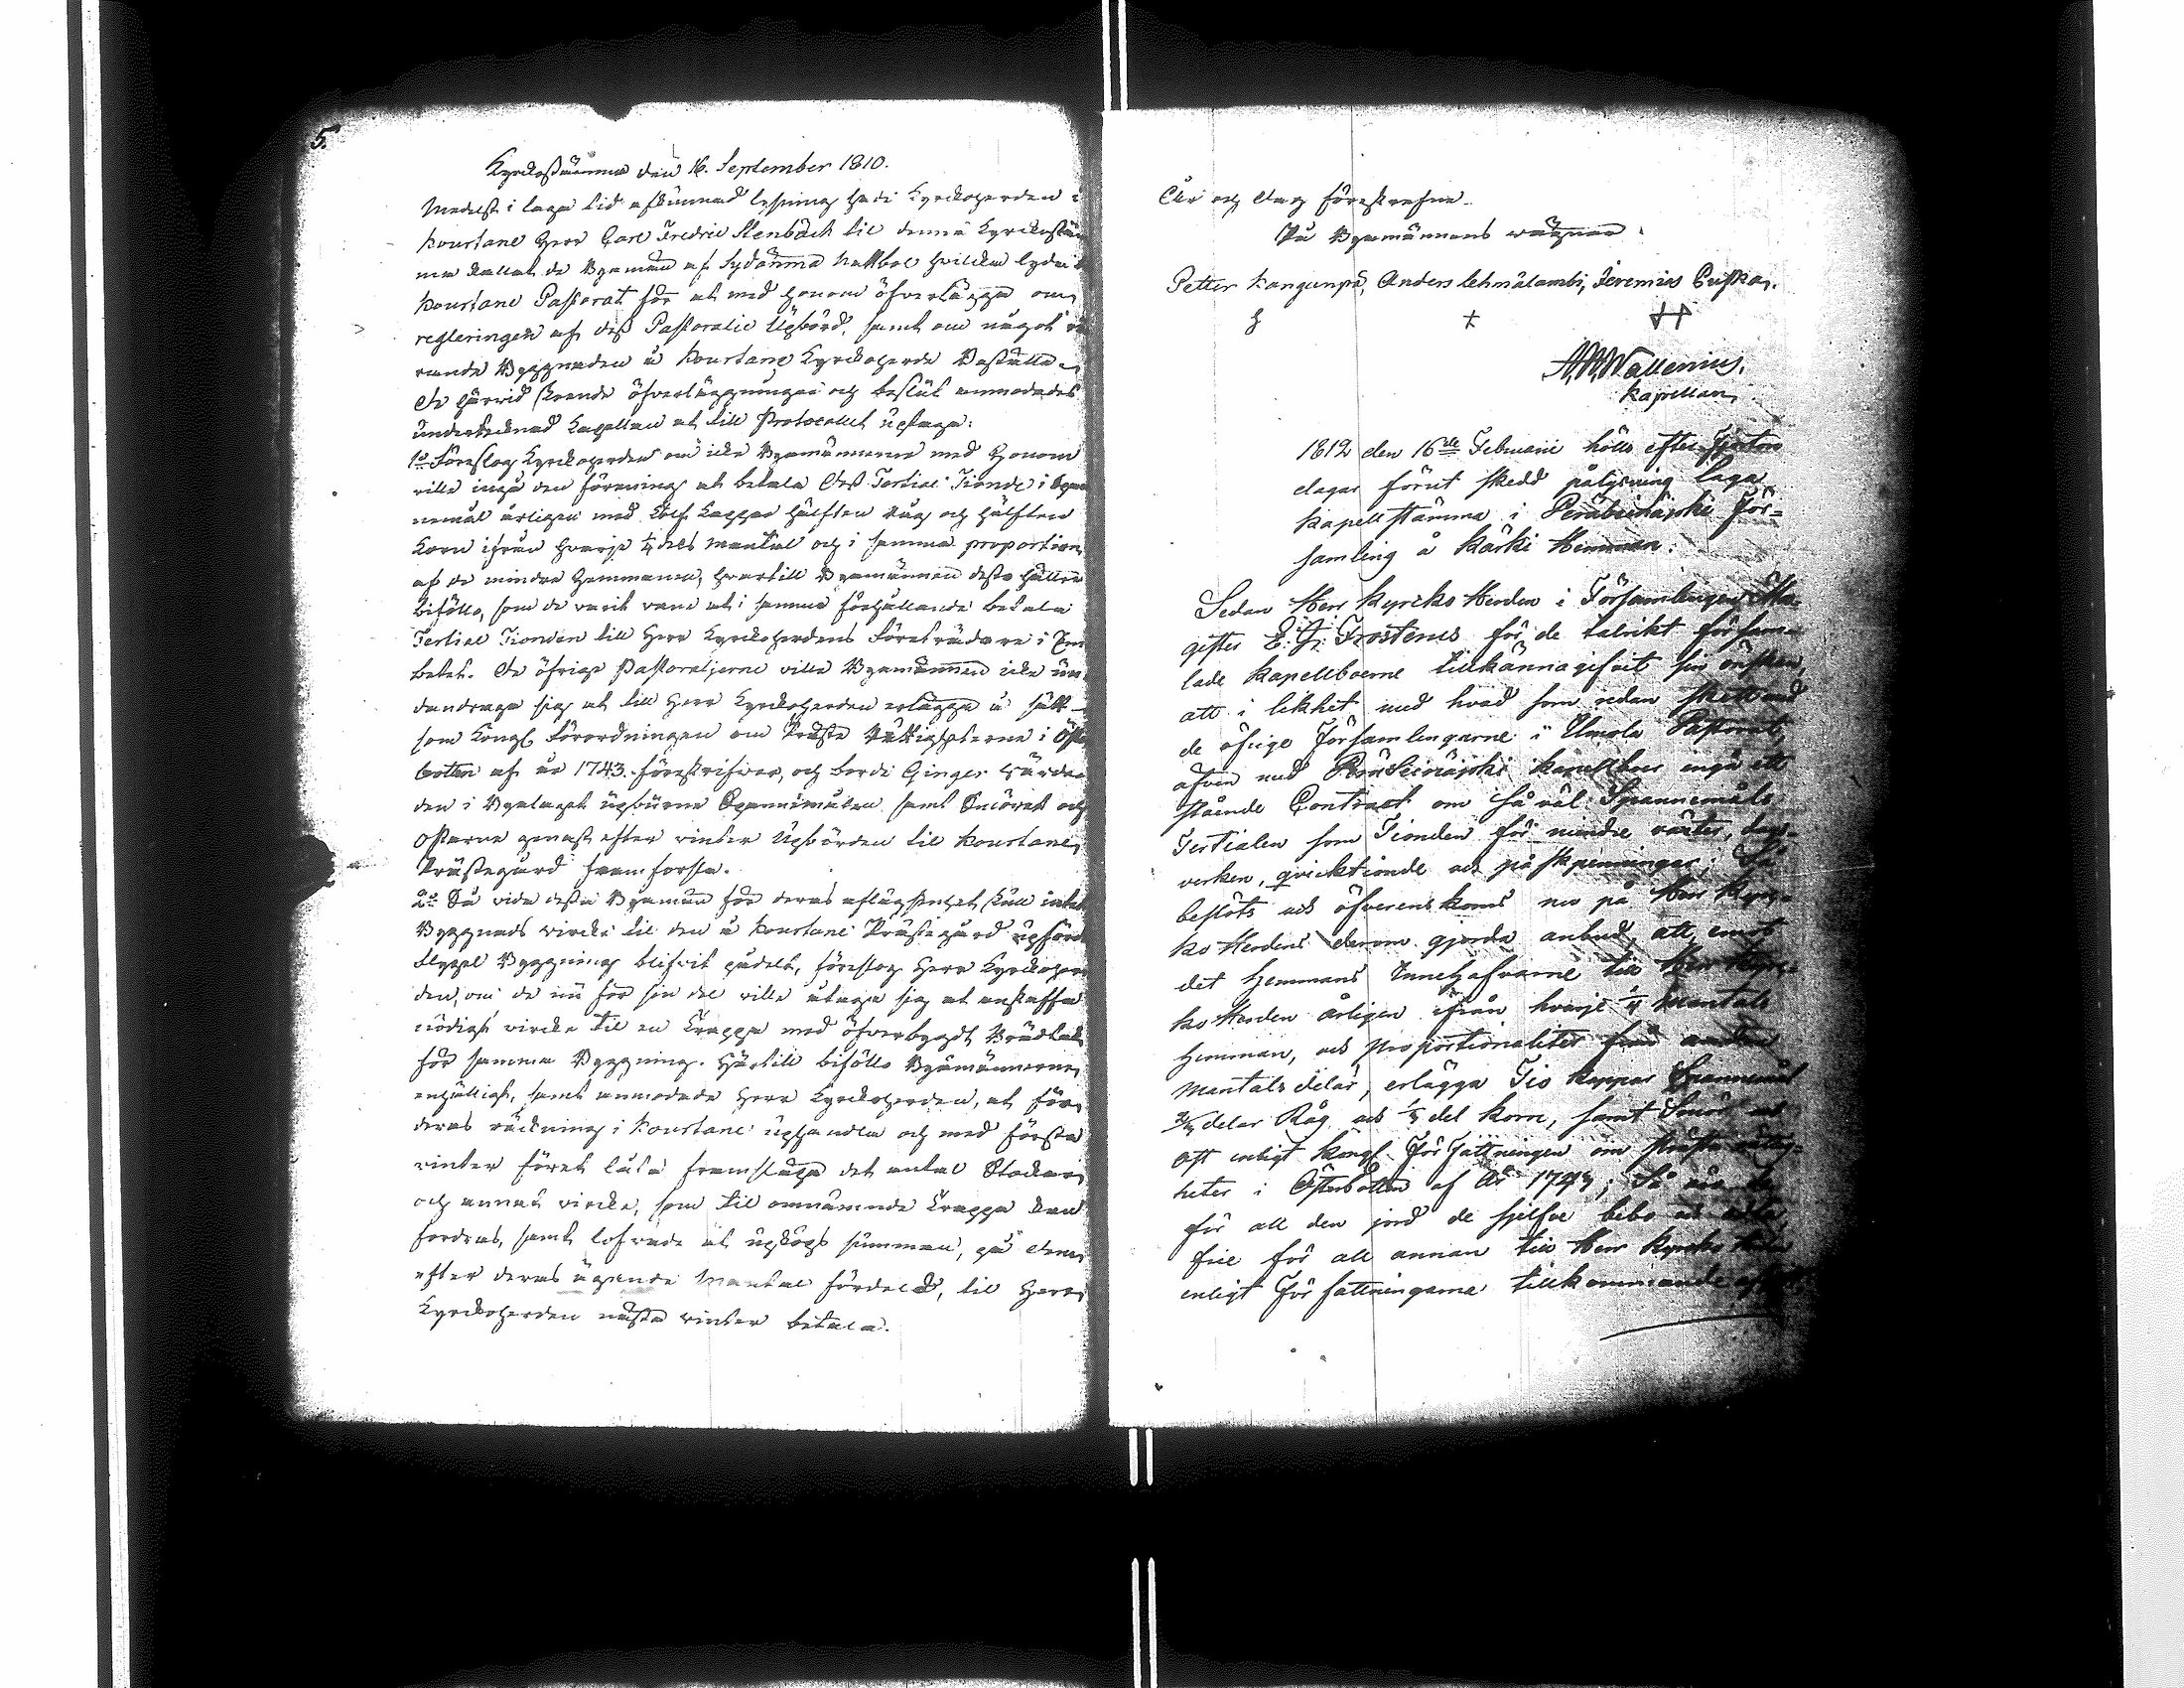 5.
Kyrckostämma den 16. September 1810.
Medelst i laga tid afkunnad lysning hade Kyrckoherden i
Kourtane Herr Carl Fredric Stenbäck til denna Kyrckostäm
ma kallat de Byamän af Sydänma Nattbol hvilka lyda til
Kourtane Pastorat för at med honom öfverlägga om
regleringen af dess Pastoralie Upbörd, samt om något rö
rande Byggnaden å Kourtane Kyrckoherde Boställe.
De härvid skeende öfverläggningar och beslut anmodades
undertecknad Capellan at till Protocollet uptaga:
1o Föreslog Kyrckoherden om icke Byamännerne med Honom
ville ingå den förening at betala Dess Tertial Tionde i Span
nemål årligen med tolf Kappar hälften Råg och hälften
Korn ifrån hvarje 1/4 dels Mantal och i samma proportion
af de mindre Hemmanen, hvartill Byamännen desto hällre
biföllo, som de varit vane at i samma förhållande betala
Tertial Tionden till Herr Kyrckoherdens Företrädare i Em
betet. De öfriga Pastoralierne ville Byamännen icke un
dandraga sig at till Herr Kyrckoherden erlägga å sätt
som Kongl. Förordningen om Präste Rättigheterne i Öster
botten af år 1743. föreskrifver, och borde Ginges värden
den i Byalaget upburne Spannemålen samt Smöret och
Ostarne genast efter vinter Upbörden til Kourtane
Prästegård framforsla.
2o Då vid desse Byamän för deras aflägsenhet skull intet
Byggnads virke til den å Kourtane Prästegård upförde
Flygel Byggning blifvit pådelt, föreslog Herr Kyrckoher
den, om de nu för sin del ville utaga sig at anskaffa
nödigt vircke til en Trappa med öfverbygdt Brädtak
för samma Byggning. Härtill biföllo Byamännerne
enhälligt, samt anmodade Herr Kyrckoherden, at för
deras räckning i Kourtane uphandla och med första
vinter föret låta framsläpa det antal Stockar
och annat vircke, som til omnämnde Trappa kan
fordras, samt lofvade at upköps summan, på dem
efter deras ägande Mantal fördeld, til Herr
Kyrckoherden nästa vinter betala.
År och dag föreskrefne
På Byamännens wägnar.
Petter Kangunpä, Anders Lehmälambi, Jeremias
A.M. Wallenius,
Kapellan
1812 den 16de Februarii hölls efter Fjorton
dagar förut skedd pålysning laga
Kapell stämma i Peräseinäjoki För-
samling å Kärki Hemman:
Sedan Herr Kyrcko Herden i Församlingen Ma-
gister E. J. Frosterus för de talrikt försam-
lade Kapellboerne tillkännagifvit sin önskan,
att i likhet med hvad som redan skett med
de öfrige Församlingarne i Ilmola Pastorat,
äfven med Peräseinäjoki Kapellboer ingå ett
stående Contract om så väl Spannemåls
Tertialen som Tionden för mindre växter, dags-
verken, qvicktionde och påskpenningar; Så
beslöts och öfverenskoms nu på Herr Kyrc-
ko Herdens derom gjorda anbud, att emot
det Hemmans Innehafvarne till Herr Kyrc-
ko Herden årligen ifrån hvarje 1/4 Mantals
Hemman, och proportionaliter från andra
Mantals delar, erlägga Tio Kappar Spannemål
delar Råg och del Korn, samt Smör och
Ost enligt Kongl. Författningen om Präste rättig-
heter i Österbotten af År 1743; Så äro de
för all den jord de sjelfve bebo
frie för all annan till Herr Kyrcko Herden
enligt Författningarna tillkommande